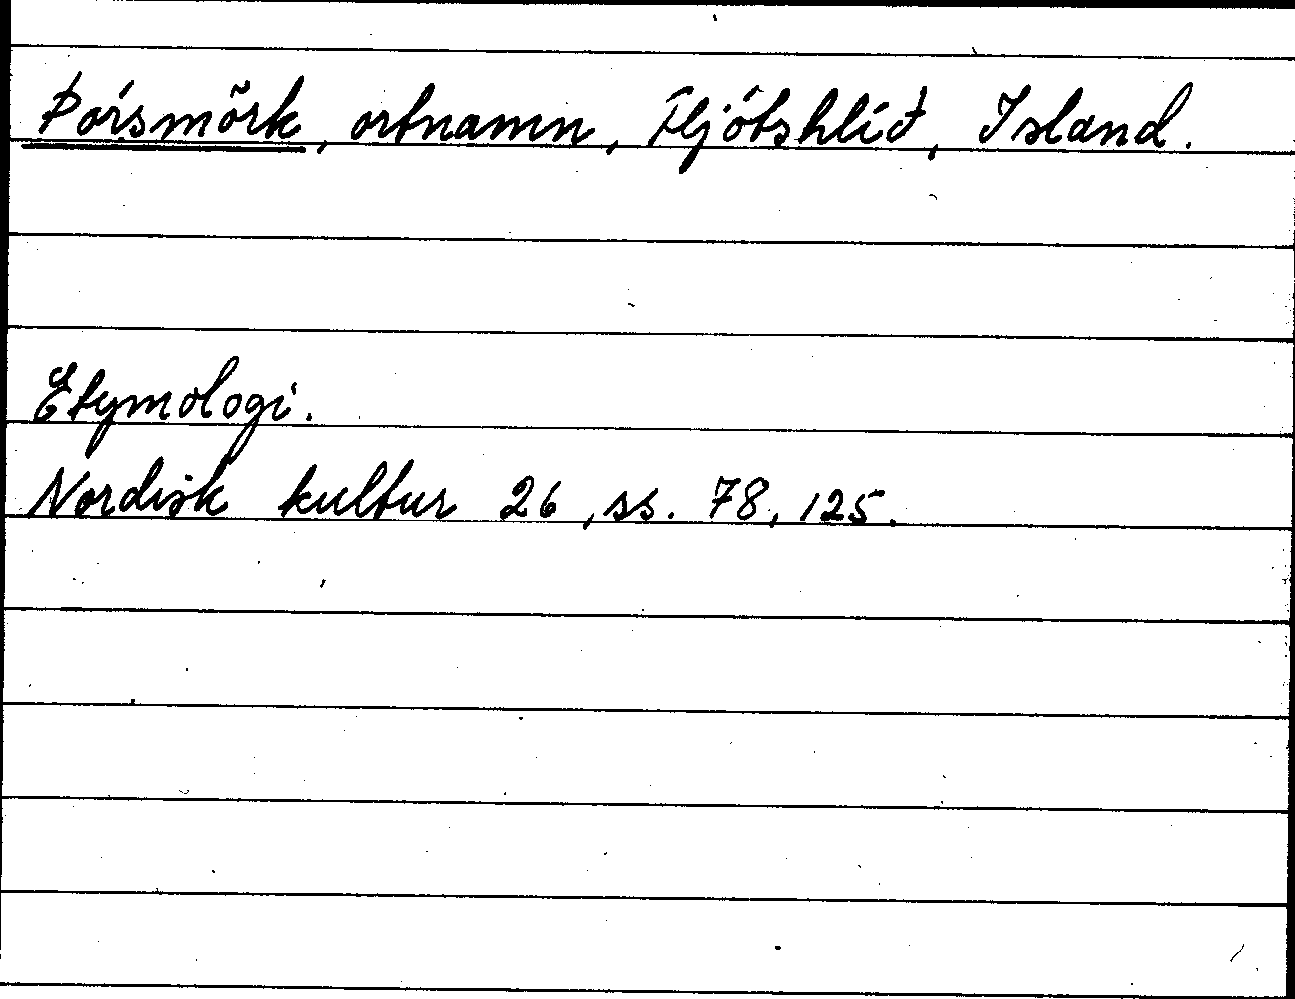 Þórsmörk, ortnamn, Fljótshlíð, Island.
Etymologi.
Nordisk kultur 26, ss. 78, 125.